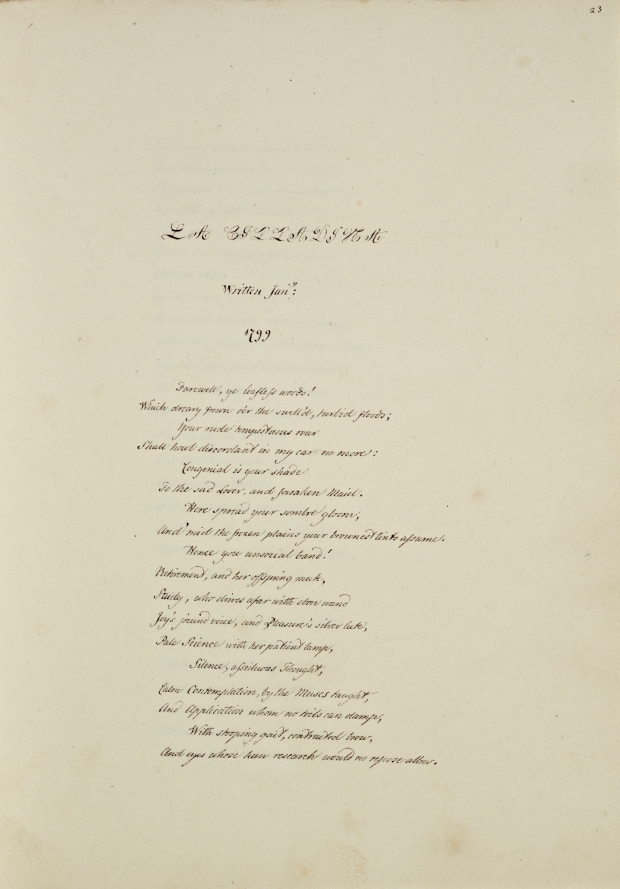 23
LA CILLADINA
Written Jan.y:
1799
Farewell, ye leafless woods!
Which dreary frown o'er the swell'd, turbid floods;
Your rude tempestuous roar
Shall howl discordant in my ear no more:
Congenial is your shade
To the sad Lover, and forsaken Maid.
Here spread your sombre gloom,
And 'mid the frozen plains your brownest tints assume.
Hence you unsocial band!
Retirement, and her offspring meek,
Study, who drives afar with ebon wand
Joy's jocund voice, and Pleasure's silver lute,
Pale Science with her patient lamp,
Silence, assiduous Thought,
Calm Contemplation, by the Muses taught,
And Application whom no toils can damp,
With stooping gait, contracted brow,
And eyes whose keen research would no repose allow.